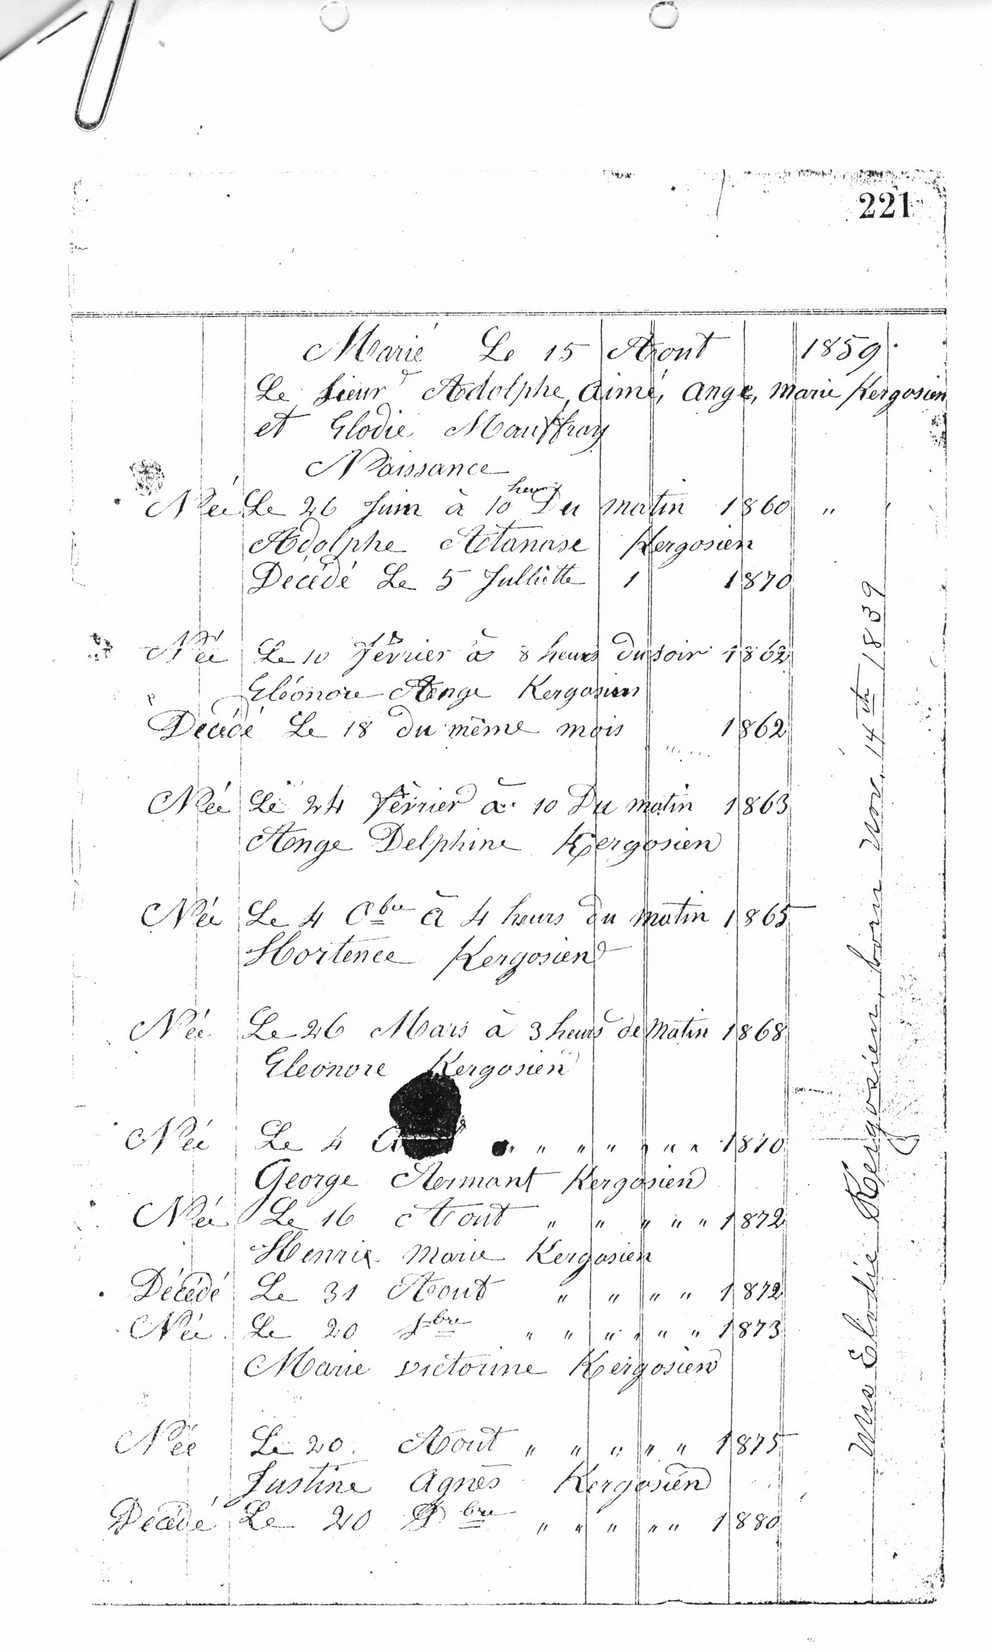 221
Marié Le 15 Aout 1859.
Le Sieur Adolphe, Aimé, Ange, Marie Kergosien
et Elodie Mauffray
Naissance
Née Le 26 Juin à 10 heurs Du matin 1860 "
Adolphe Actanase Kergosien
Décédé Le 5 Julliette 1 1870
Née Le 10 février à 8 heurs du soir 1862
Eléonore Ange Kergosien
Decédé Le 18 du même mois 1862
Née Le 24 février à 10 Du matin 1863
Ange Delphine Kergosien
Née Le 4 Obre à 4 heurs du matin 1865
Hortence Kergosien
Née Le 26 Mars à 3 heurs de Matin 1868
Eleonore Kergosien
Née Le 4 " " " " " " 1870
George Armant Kergosien
Née Le 16 Aout " " " " " 1872
Henrie Marie Kergosien
Décédé Le 31 Aout " " " " 1872
Née Le 20 bre " " " " " " 1873
Marie victorine Kergosien
Née Le 20 Aout " " " " " 1875
Justine Agnès Kergosien
Decédé Le 20 bre " " " " " 1880
Mrs Elodie Kergosien, born Nov. 14th 1839